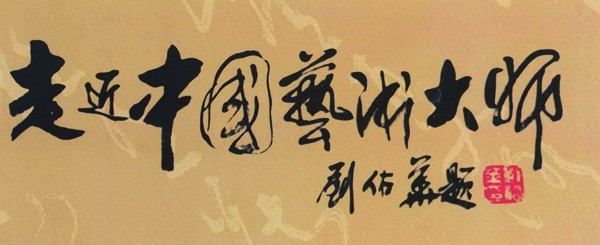 走近中國藝術大师
劉佑華題